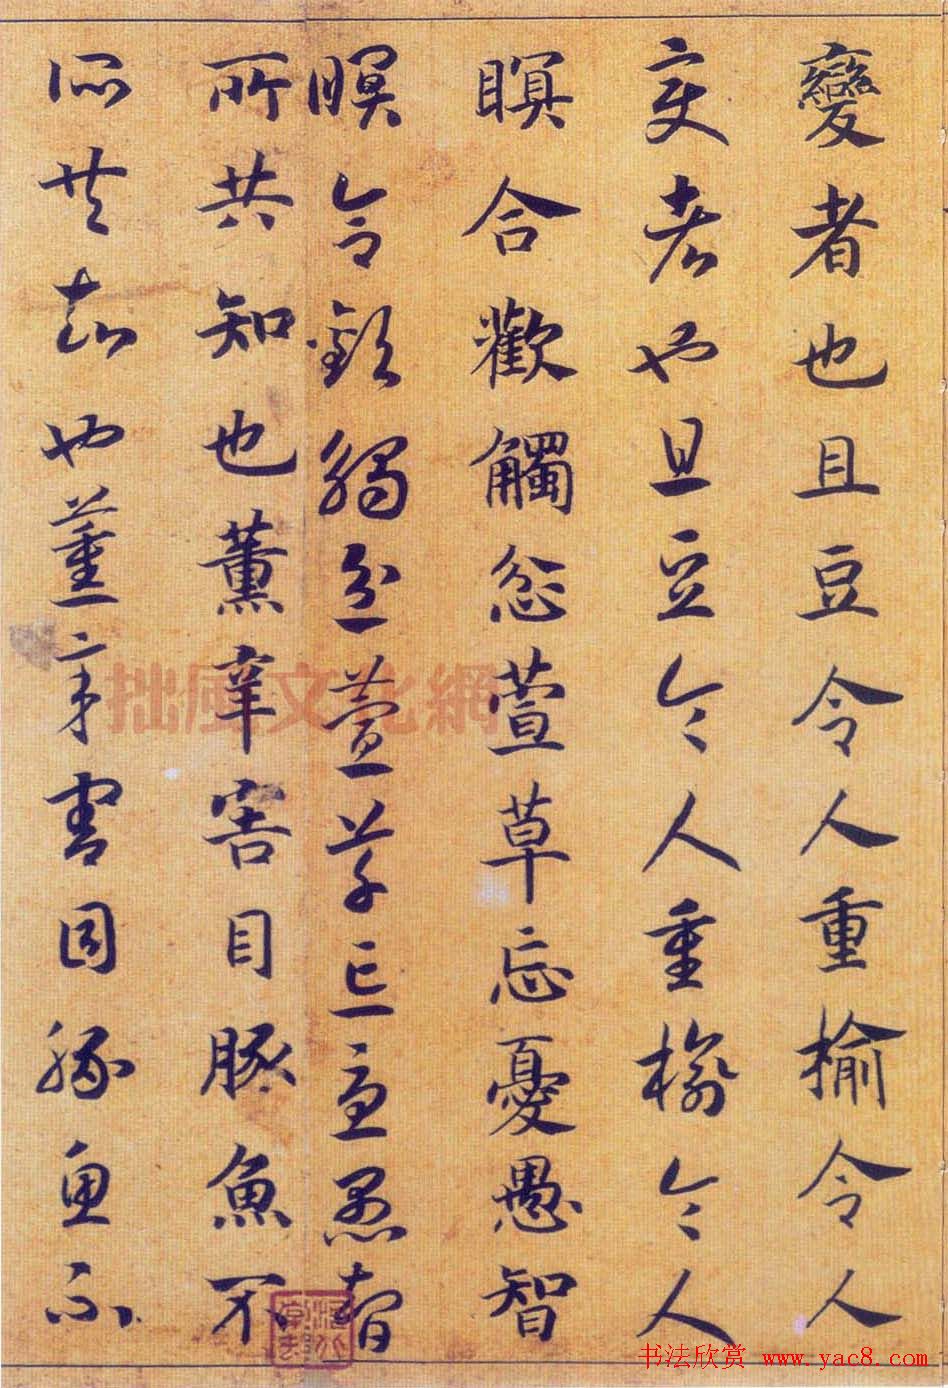 變者也且豆令人重榆令人
变者也且豆令人重榆令人
瞑合歡觸忿萱草忘憂愚智
瞑合歡觸忿萱草忘憂愚智
所共知也薰辛害目豚魚不
所共知也薰辛害目豚魚不
拙風文化網
书法欣赏 www.yac8.com